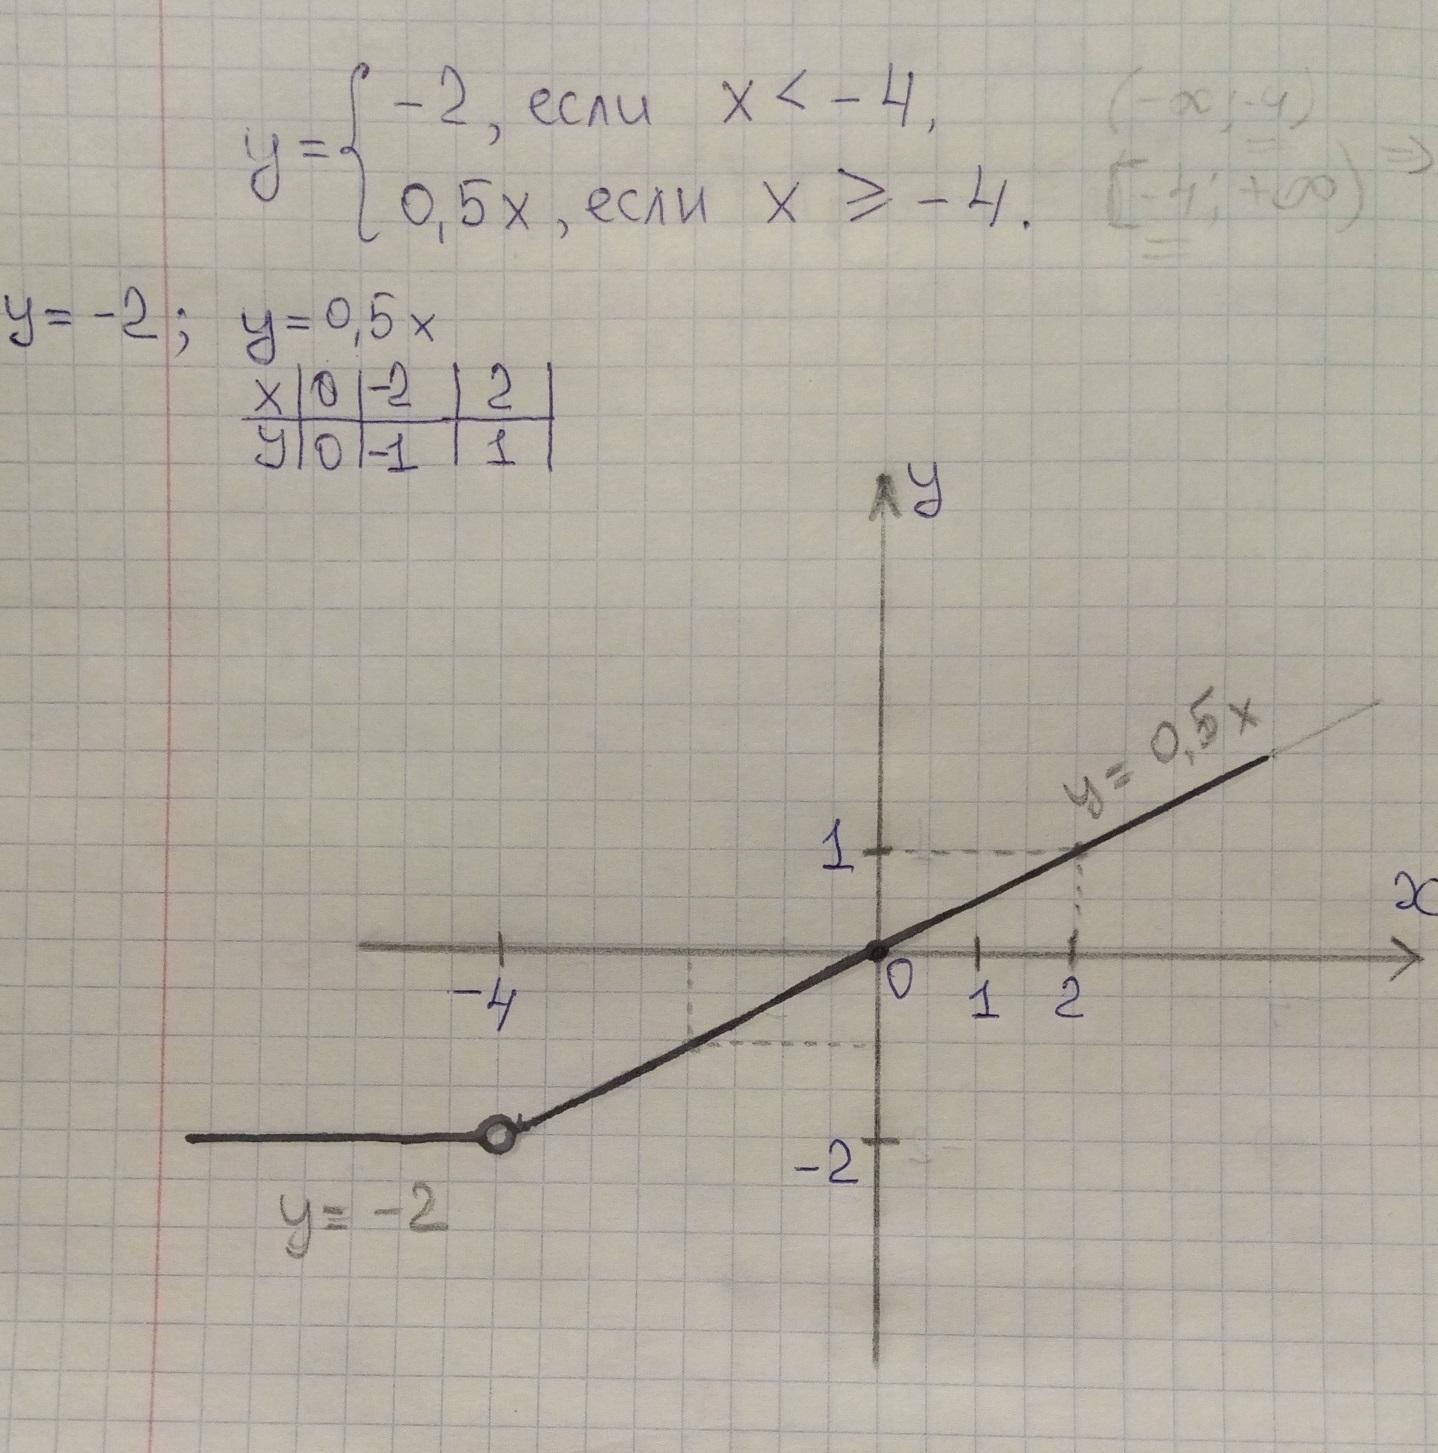 y = { -2, если x < -4, (-∞; -4)
0,5x, если x ≥ -4. [-4; +∞) ⇒
y = -2; y = 0,5x
x | 0 | -2 | 2 |
y | 0 | -1 | 1 |
y
y = 0,5x
1
x
-4 0 1 2
-2
y = -2